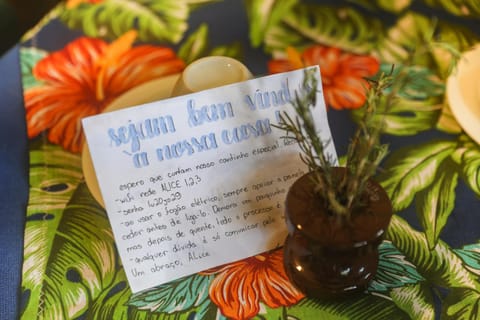 sejam bem vind
à nossa casa!
espero que curtam nosso cantinho especial.
- wifi rede ALICE 1,2,3
- senha
- ao usar o fogão elétrico, sempre apoiar a panela
antes de ligá-lo. Demora um pouquinho
mas depois de quente, todo o processo é
- qualquer dúvida é só comunicar pelo
Um abraço, ALice